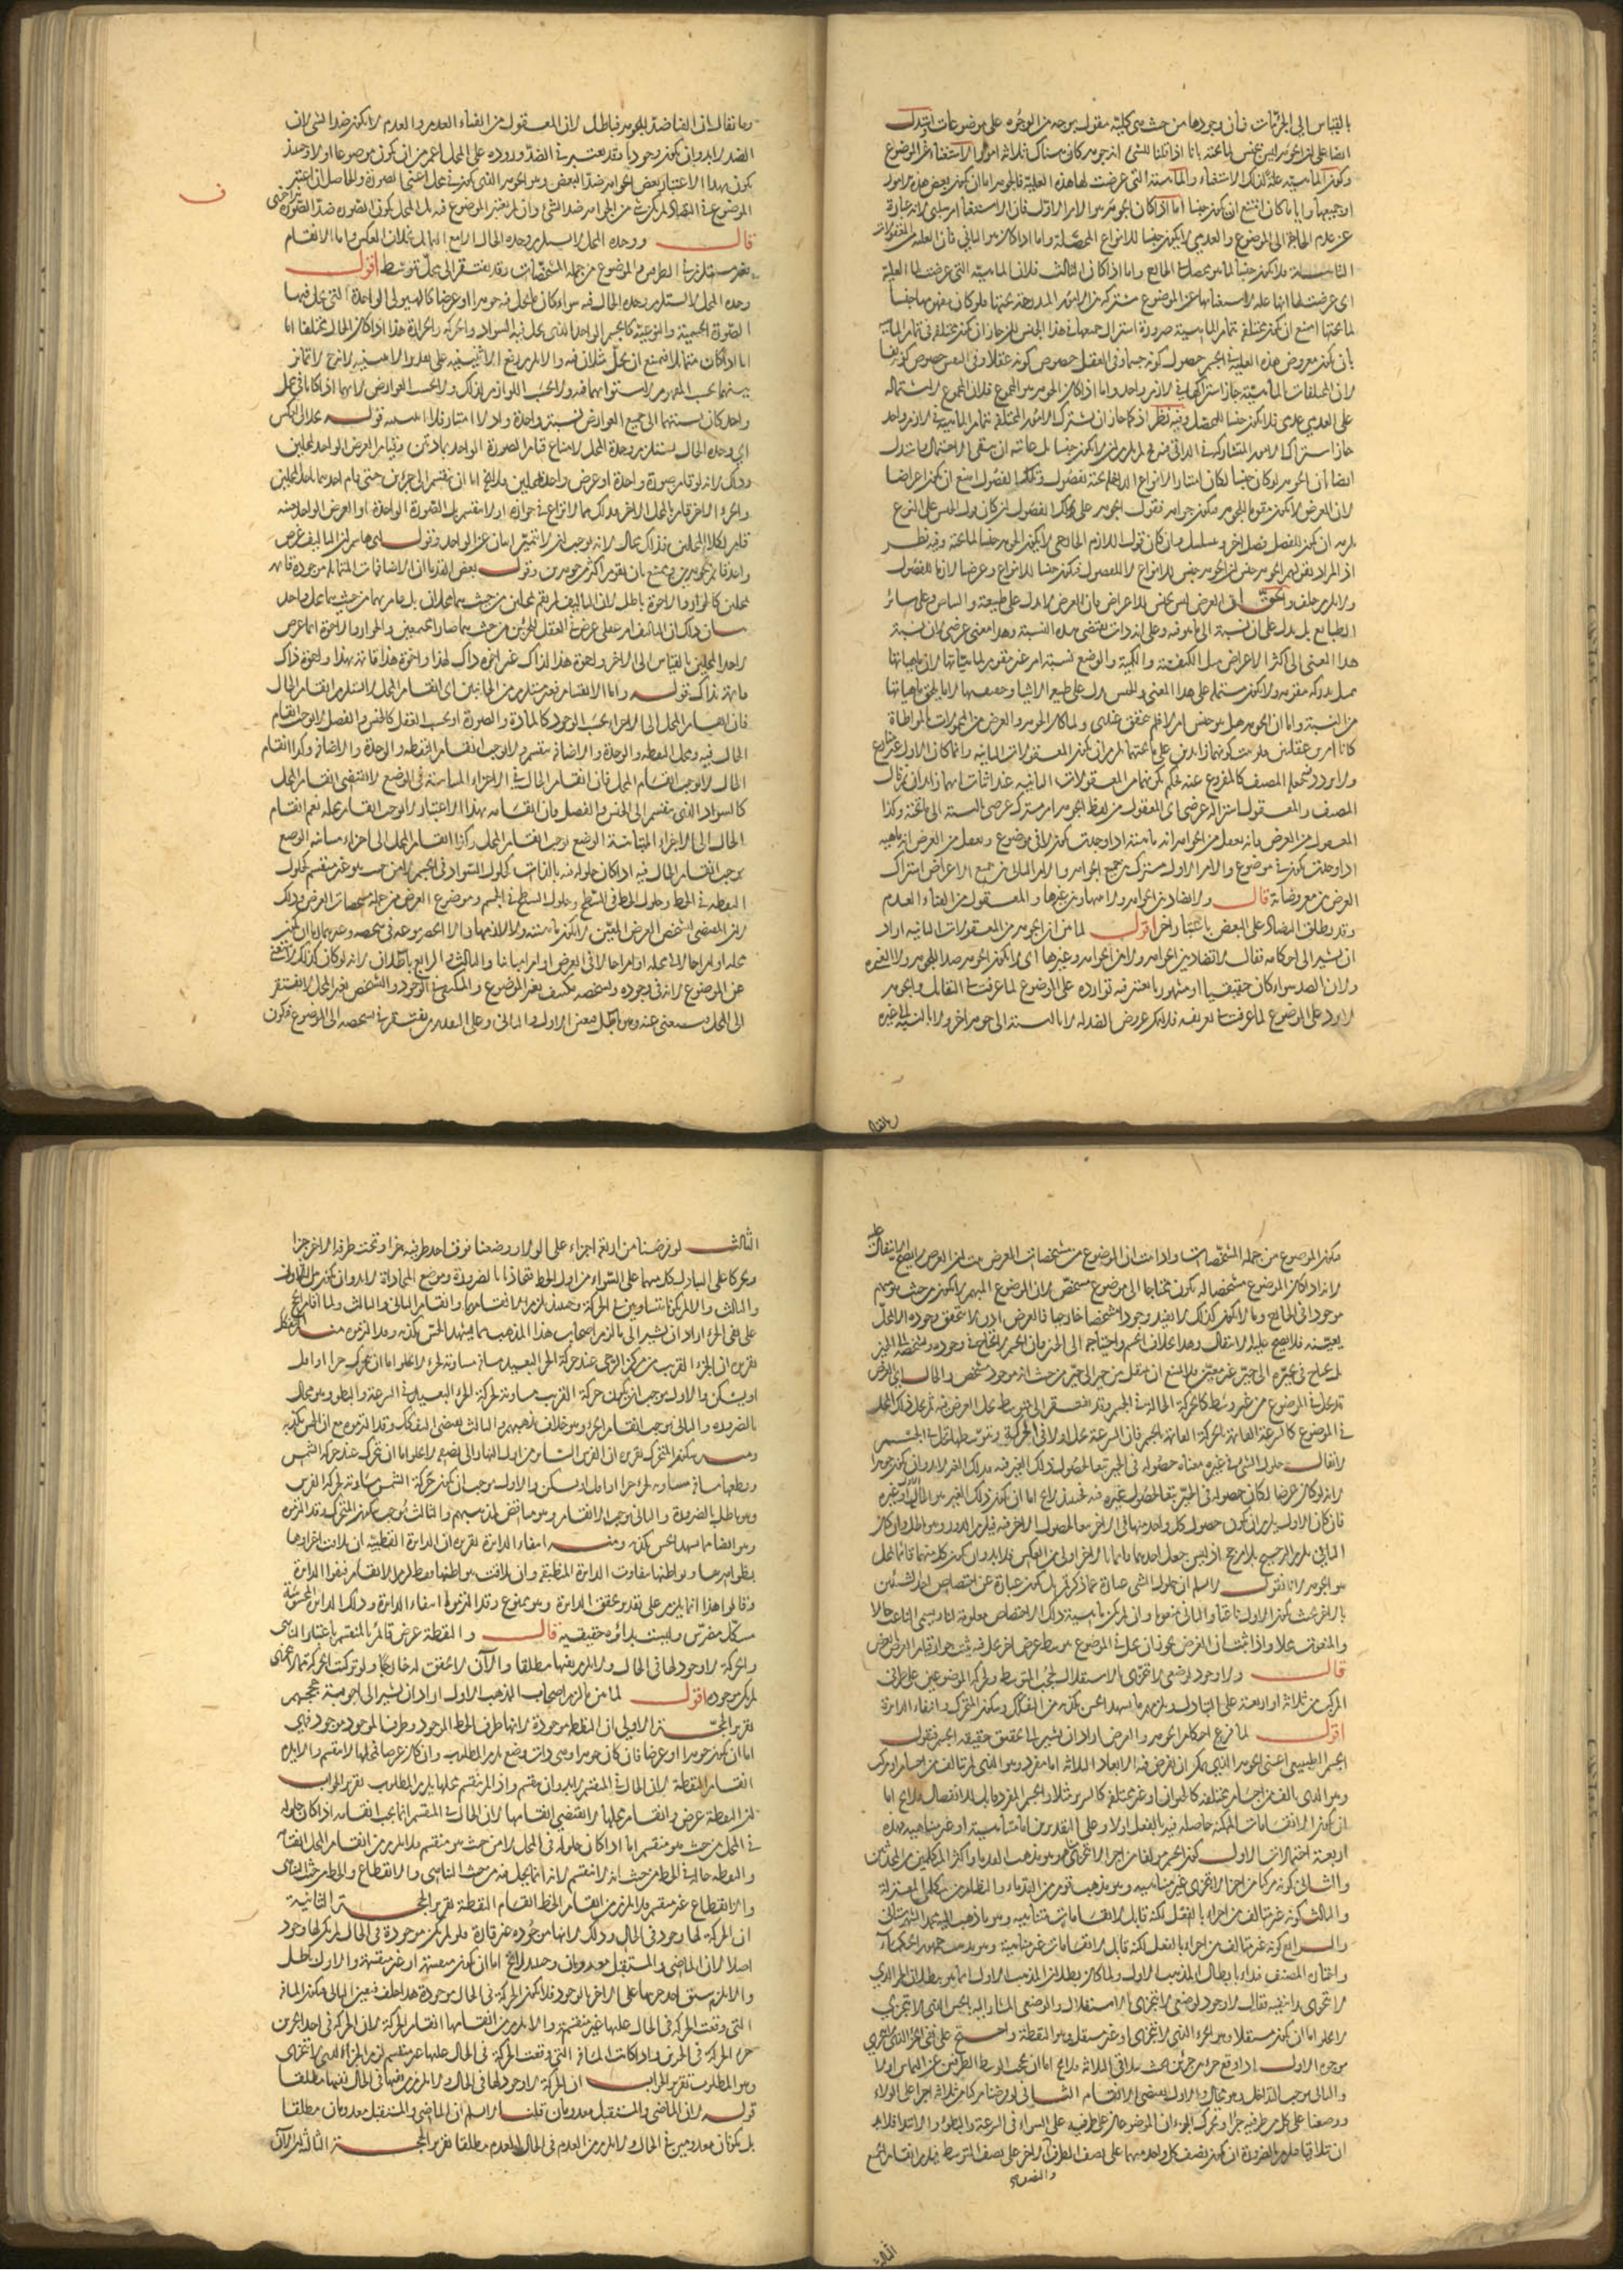 بالقياس الى الجزئيات فان وجودها من حيث هى كلية مقول بوجه من الوجوه على موضوعات
ايضا على ان الجوهر ليس بجنس لما تحته بانا اذا قلنا للشئ انه جوهر كان هناك ثلاثة امور الاستغناء عن الموضوع
وكون الماهية علة لذلك الاستغناء والماهية التى عرضت لها هذه العلية فالجوهر اما ان يكون بعض هذه الامور
او جميعها وايا ما كان امتنع ان يكون جنسا اما اذا كان الجوهر هو الامر الاول فان الاستغناء امر سلبى لانه عبارة
عن عدم الحاجة الى الموضوع والعدمى لا يكون جنسا للانواع المحصلة واما اذا كان هو الثانى فان العلية
فلا يكون جنسا لما هو محصل فى الخارج واما اذا كان الثالث فلان الماهية التى عرضت لها العلية
اى عرضت لها انها علة لاستغنائها عن الموضوع مشتركة بين الامور المندرجة تحتها فلو كان مفهومها جنسا
لما تحتها امتنع ان يكون مختلفة بتمام الماهية ضرورة اشتراك جميعها فى هذا الجنس لكن جاز ان يكون مختلفة فى تمام الماهية
بان يكون معروض هذه العلية فى الجسم خصوص كونه جسما وفى العقل خصوص كونه عقلا وفى النفس خصوص كونه نفسا
لان المختلفات بالماهية جاز اشتراكها فى لازم واحد واما اذا كان الجوهر هو المجموع فلان المجموع لاشتماله
على العدمى عدمى فلا يكون جنسا للمحصل وفيه نظر اذ كما جاز ان يشترك الامور المختلفة بتمام الماهية فى لازم واحد
جاز اشتراك الامور المتشاركة فى الذاتى
ايضا بان الجوهر لو كان جنسا لكان امتياز الانواع الداخلة تحته بفصول وتلك الفصول امتنع ان يكون اعراضا
لان العرض لا يكون مقوما للجوهر فيكون جواهر فقول الجوهر على تلك الفصول ان كان قول الجنس على النوع
يلزم ان يكون للفصل فصل اخر ويتسلسل وان كان قول اللازم الخارجى لا يكون الجوهر جنسا لما تحته وفيه نظر
اذ المراد بقولهم الجوهر جنس ان الجوهر جنس للانواع لا للفصول فيكون جنسا للانواع وعرضا لازما للفصول
ولا يلزم خلف والحق ان العرض ليس بجنس للاعراض فان العرض لا يدل على طبيعة البياض وعلى سائر
الطبايع بل يدل على ان نسبة الى ما هو فيه وعلى ان ذات يقتضى هذه النسبة وهذا معنى عرضى فان نسبة
هذا المعنى الى اكثر الاعراض مثل الكيفية والكمية والوضع نسبة امر غير مقوم لماهياتها
من النسبة واما ان الجوهر هل هو جنس ام لا فلم يتحقق عندى ولما كان الجوهر والعرض من المحمولات بالمواطاة
كانا امرين عقليين
المصنف والمعقول اشتراكه عرضى اى المعقول من لفظ الجوهر امر مشترك عرضى بالنسبة الى ما تحته وكذا
المعقول من العرض فانه يعقل من الجواهر انه ماهية اذا وجدت يكون لا فى موضوع ويعقل من العرض انه ماهية
اذا وجدت يكون فى موضوع والامر الاول مشترك بين جميع الجواهر والامر الثانى بين جميع الاعراض اشتراك
العرض بين معروضاته قال ولا تضاد بين الجواهر ولا بينها وبين غيرها والمعقول من الفناء العدم
وقد يطلق التضاد على البعض باعتبار اخر اقول لما بين ان الجوهر من المعقولات الثانية اراد
ان يشير الى احكامه فقال لا تضاد بين الجواهر ولا بين الجواهر وغيرها اى لا يكون الجوهر ضدا للجوهر ولا لغيره
ولان الضد سواء كان حقيقيا او مشهوريا يعتبر فيه توارده على الموضوع لما عرفت فى التقابل والجوهر
لا يرد على الموضوع لما عرفت فى تعريفه فلا يكون عروض الضد له لا بالنسبة الى جوهر اخر ولا بالنسبة الى غيره
وما يقال ان الفنا ضد للجوهر فباطل لان المعقول من الفناء العدم والعدم لا يكون ضدا لشئ لان
الضد لا بد وان يكون وجوديا وقد يعتبر فى الضد وروده على المحل اعم من ان يكون موضوعا او لا وحينئذ
يكون بهذا الاعتبار بعض الجواهر ضد البعض وهو الجوهر الذى يكون فى محل اعنى الصورة والحاصل ان اعتبر
الموضوع فى التضاد لم يكن شئ من الجواهر ضد الشئ وان لم يعتبر الموضوع فيه بل المحل يكون الصورة ضد الصورة اخرى
قال ووحدة المحل لا يستلزم وحدة الحال الا مع التماثل بخلاف العكس واما الانقسام
فغير مستلزم فى الطرفين الموضوع من جملة المشخصات وقد يفتقر الى محل متوسط اقول
وحدة المحل لا يستلزم وحدة الحال فيه سواء كان ما يحل فيه جوهرا او عرضا كالهيولى الواحدة التى يحل فيها
الصورة الجسمية والنوعية وكالجسم الواحد الذى يحل فيه السواد والحركة والحرارة هذا اذا كان الحال مختلفا اما
اما اذا كان متماثلا فيمتنع ان يحل مثلان فيه والا لزم رفع الاثنينية على تقدير الاثنينية لانه ح لا تمايز
بينهما بحسب المفهوم لاستوائهما فيه ولا بحسب اللوازم لذلك ولا بحسب العوارض لانهما اذا كانا فى محل
واحد كان نسبتهما الى جميع العوارض نسبة واحدة واذ لا امتياز فلا اثنينية قوله بخلاف العكس
اى وحدة الحال يستلزم وحدة المحل لامتناع قيام الصورة الواحدة بمادتين وقيام العرض الواحد بمحلين
وذلك لانه لو قام صورة واحدة او عرض واحد بمحلين فلا يخ اما ان ينقسم الى جزئين حتى قام احدهما باحد المحلين
والجزء الاخر قام بالمحل الاخر فذلك مما لا نزاع فى جوازه او لا ينقسم بل الصورة الواحدة او العرض الواحد بعينه
قام بكلا المحلين فذلك محال لانه يوجب ان لا يتميز اثنان عن الواحد وقول ابى هاشم ان التاليف عرض
واحد قائم بجوهرين ويمتنع بان يقوم باكثر من جوهرين وقول بعض القدما ان الاضافات المتماثلة موجودة قائمة
بمحلين كالجوار والاخوة باطل لان التاليف لم يقم بمحلين من حيث هما محلان بل قام بهما من حيث هما محل واحد
لاحد المحلين بالقياس الى الاخر واخوة هذا لذاك غير اخوة ذاك لهذا واخوة هذا قائمة بهذا واخوة ذاك
قائمة بذاك قوله واما الانقسام فغير مستلزم من الجانبين اى انقسام المحل لا يستلزم انقسام الحال
فان انقسام المحل الى الاجزاء بحسب الوجود كالمادة والصورة او بحسب العقل كالجنس والفصل لا يوجب انقسام
الحال فيه ومحل النقطة والوحدة والاضافة منقسم ولا يوجب انقسام النقطة والوحدة والاضافة وكذا انقسام
الحال لا يوجب انقسام المحل فان انقسام الحال فى الاجزاء المتباينة فى الوضع لا يقتضى انقسام المحل
كالسواد الذى ينقسم الى الجنس والفصل فان انقسامه بهذا الاعتبار لا يوجب انقسام محله نعم انقسام
الحال الى الاجزاء المتباينة الوضع يوجب انقسام المحل وكذا انقسام المحل الى اجزاء متباينة الوضع
يوجب انقسام الحال فيه اذا كان حلوله فيه بالذات كحلول السواد فى الجسم لا من حيث هو غير منقسم كحلول
النقطة فى الخط وحلول الخط فى السطح وحلول السطح فى الجسم وموضوع العرض من جملة مشخصات العرض وذلك
لان المقتضى لتشخص العرض المعين لا يكون ماهيته ولا لازمها والا لانحصر نوعه فى شخصه
محله او امرا حالا فى محله او امرا حالا فى العرض او امرا مباينا والثالث والرابع باطلان لانه لو كان كذلك لاستغنى
عن الموضوع لانه فى وجوده وتشخصه مكتف بغير الموضوع والمكتفى فى الوجود والتشخص بغير المحل لا يفتقر
الى المحل فيستغنى عنه وهو باطل فتعين الاول والثانى وعلى التقديرين يفتقر فى تشخصه الى الموضوع فيكون
فيكون الموضوع من جملة المشخصات واذا ثبت ان الموضوع من مشخصات العرض ثبت ان العرض لا يصح عليه الانتقال
لانه اذا كان الموضوع مشخصا له يكون محتاجا الى موضوع مشخص لان الموضوع المبهم لا يكون من حيث هو مبهم
موجودا فى الخارج وما لا يكون كذلك لا يفيد وجودا مشخصا خارجيا فالعرض اذن لا يتحقق وجوده الا بمحل
بعينه فلا يصح عليه الانتقال وهذا بخلاف الجسم واحتياجه الى الحيز فان الجسم لا يحتاج فى وجوده وتشخصه الى الحيز
بل يحتاج فى تحيزه الى حيز غير معين فلا يمتنع ان ينتقل من حيز الى حيز من حيث انه موجود مشخص والحال اى العرض
قد يحل فى الموضوع من غير وسط كالحركة الحالة فى الجسم وقد يفتقر الى متوسط يحل العرض فيه ثم يحل ذلك المحل
فى الموضوع كالسرعة القائمة بالحركة القائمة بالجسم فان السرعة تحل اولا فى الحركة وبتوسطها تحل فى الجسم
لا يقال حلول الشئ فى غيره معناه حصوله فى الحيز تبعا لحصول ذلك الغير فيه فذلك الغير لا بد وان يكون جوهرا
لانه لو كان عرضا لكان حصوله فى الحيز تبعا لحصول غيره فيه فحينئذ لا يخ اما ان يكون ذلك الغير هو الحال او غيره
فان كان الاول يلزم ان يكون حصول كل واحد منهما فى الاخر تبعا لحصول الاخر فيه فيلزم الدور وهو باطل وان كان
الثانى يلزم الترجيح بلا مرجح اذ ليس جعل احدهما قائما بالاخر اولى من العكس فلا بد وان يكون كل منهما قائما بمحل
هو الجوهر لانا نقول لا نسلم ان حلول الشئ عبارة عما ذكرتم بل يكون عبارة عن اختصاص احد الشيئين
بالاخر بحيث يكون الاول ناعتا والثانى منعوتا وان لم يكن ماهية ذلك الاختصاص معلومة لنا ويسمى الناعت حالا
والمنعوت محلا واذا ثبت ان العرض يجوز ان يحل فى الموضوع بوسط عرض اخر يحل فيه ثبت جواز قيام العرض بالعرض
قال ولا وجود لوضعى لا يتجزى بالاستقلال لحجب المتوسط ولحركة الموضوعين على طرفى
المركب من ثلاثة او اربعة على التبادل ويلزمهم ما يشهد الحس بكذبه من التفكك وسكون المتحرك وانتفاء الدائرة
اقول لما فرغ احكام الجوهر والعرض اراد ان يشير الى تحقيق حقيقة الجسم فنقول
الجسم الطبيعى اعنى الجوهر الذى يمكن ان يفرض فيه الابعاد الثلاثة اما مفرد وهو الذى لم يتالف من اجسام او مركب
وهو الذى يتالف من اجسام مختلفة كالحيوان او غير مختلفة كالسرير مثلا والجسم المفرد قابل للانفصال فلا يخ اما
ان يكون الانقسامات الممكنة حاصلة فيه بالفعل او لا وعلى التقديرين فاما متناهية او غير متناهية فهذه
اربعة احتمالات الاول كون الجسم مؤلفا من اجزا لا تتجزى وهو مذهب القدما واكثر المتكلمين من المحدثين
والثانى كونه مركبا من اجزا لا تتجزى غير متناهية وهو مذهب قوم من القدماء والنظام من متكلمى المعتزلة
والثالث كونه غير متالف من اجزاء بالفعل لكنه قابل لانقسامات متناهية وهو ما ذهب اليه محمد الشهرستانى
والرابع كونه غير متالف من اجزاء بالفعل لكنه قابل لانقسامات غير متناهية وهو مذهب جمهور الحكماء
واختار المصنف فبدا بابطال المذهب الاول ولما كان بطلان المذهب الاول انما هو ببطلان الجزء الذى
لا يتجزى بدا بنفيه فقال لا وجود لوضعى لا يتجزى بالاستقلال والوضعى المشار اليه بالحس الذى لا يتجزى
لا يخلو اما ان يكون مستقلا وهو الجزء الذى لا يتجزى او غير مستقل وهو النقطة واحتج على نفى الجزء الذى لا يتجزى
بوجوه الاول اذا وقع جزء بين جزئين بحيث يتلاقى الثلاثة فلا يخ اما ان يحجب الوسط الطرفين عن التماس او لا
والثانى يوجب التداخل وهو محال والاول يقتضى الانقسام الثانى لو فرضنا مركبا من ثلاثة اجزا على الولاء
ووضعنا على كل من طرفيه جزا وتحرك الجزءان الموضوعان على طرفيه على السواء فى السرعة والبطؤ والابتداء فلا بد
ان يتلاقيا فيلزم بالضرورة ان يكون نصف كل واحد منهما على نصف الطرف والاخر على نصف المتوسط فيلزم انقسام الجميع
الثالث لو فرضنا من اربعة اجزاء على الولاء ووضعنا فوق احد طرفيه جزا وتحت طرفه الاخر جزا
وتحركا على التبادل كل منهما على السواء من اول الخط يتحاذيا بالضرورة وموضع المحاذاة لا بد وان يكون بين الثانى
والثالث والا لم يكونا متساويين فى الحركة وحينئذ يلزم انقسامهما وانقسام الثانى والثالث ولما اقام الحجج
على نفى الجزء اراد ان يشير الى ما لزم اصحاب هذا المذهب مما يشهد الحس بكذبه وقد التزموه منه التفكك
تقريره ان الجزء القريب من مركز الرحى عند حركة الجزء البعيد مسافة مساوية لجزء لا يخلو اما ان يتحرك جزا او اقل
او يسكن والاول يوجب ان يكون حركة القريب مساوية لحركة الجزء البعيد فى السرعة والبطؤ وهو محال
بالضرورة والثانى يوجب انقسام الجزء وهو خلاف مذهبهم والثالث يقتضى التفكك وقد التزموه مع ان الحس يكذبه
ومنه سكون المتحرك تقريره ان الفرس السائر من اول النهار الى نصفه لا يخلو اما ان يتحرك عند حركة الشمس
وقطعها مسافة مساوية لجزء جزا او اقل او يسكن والاول يوجب ان يكون حركة الشمس مساوية لحركة الفرس
وهو باطل بالضرورة والثانى يوجب الانقسام وهو مناقض لمذهبهم والثالث يوجب سكون المتحرك وقد التزموه
وهو ايضا مما يشهد الحس بكذبه ومنه انتفاء الدائرة تقريره ان الدائرة القطبية ان تلاقت اجزاؤها
بظواهرها وبواطنها ساوت الدائرة المنطقية وان تلاقت ببواطنها فقط لزم الانقسام فنفوا الدائرة
وقالوا هذا انما يلزم على تقدير تحقق الدائرة وهو ممنوع وقد التزموا انتفاء الدائرة وذلك الدائرة المحسوسة
شكل مضرس وليست بدائرة حقيقية قال والنقطة عرض قائم بالمنقسم باعتبار التناهى
والحركة لا وجود لها فى الحال ولا يلزم نفيها مطلقا والآن لا تحقق له خارجا ولو تركبت الحركة مما لا تتجزى
لم تكن موجودة اقول لما بين ما لزم اصحاب المذهب الاول اراد ان يشير الى اجوبة حججهم
تقرير الحجة الاولى ان النقطة موجودة لانها طرف الخط الموجود وطرف الموجود موجود فهى
اما ان يكون جوهرا او عرضا فان كان جوهرا وهى ذات وضع يلزم المطلوب وان كان عرضا فمحلها لا ينقسم والا يلزم
انقسام النقطة لان الحال فى المنقسم لا بد وان ينقسم واذ لم ينقسم محلها يلزم المطلوب تقرير الجواب
ان النقطة عرض وانقسام محلها لا يقتضى انقسامها لان الحال فى المنقسم انما يجب انقسامه اذا كان حلوله
فى المحل من حيث هو منقسم اما اذا كان حلوله فى المحل لا من حيث هو منقسم فلا يلزم من انقسام المحل انقسامه
والنقطة حالة فى الخط من حيث انه لا ينقسم لانه انما يحل فيه من حيث التناهى والانقطاع والخط من حيث التناهى
والانقطاع غير منقسم فلا يلزم من انقسام الخط انقسام النقطة تقرير الحجة الثانية
ان الحركة لها وجود فى الحال وذلك لانها موجودة غير قارة فلو لم يكن موجودة فى الحال لم يكن لها وجود
اصلا لان الماضى والمستقبل معدومان وحينئذ لا يخ اما ان يكون منقسمة او غير منقسمة والاول باطل
والا لزم سبق احد جزئيها على الاخر بالوجود فلا يكون الحركة فى الحال موجودة هذا خلف فتعين الثانى فيكون المسافة
التى وقعت الحركة فى الحال عليها غير منقسمة والا يلزم من انقسامها انقسام الحركة لان الحركة فى احد الجزئين
جزء الحركة فى الجزئين واذا كانت المسافة التى وقعت الحركة فى الحال عليها غير منقسم لزم الجزء الذى لا يتجزى
وهو المطلوب تقرير الجواب ان الحركة لا وجود لها فى الحال ولا يلزم من نفيها فى الحال نفيها مطلقا
قوله لان الماضى والمستقبل معدومان قلنا لا نسلم ان الماضى والمستقبل معدومان مطلقا
بل يكونان معدومين فى الحال ولا يلزم من العدم فى الحال العدم مطلقا تقرير الحجة الثالثة ان الآن